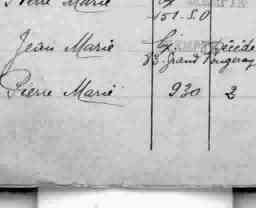 Pierre Marie
151-50
Jean Marie Décédé
83. Grand Fougeray
Pierre Marie 930 2